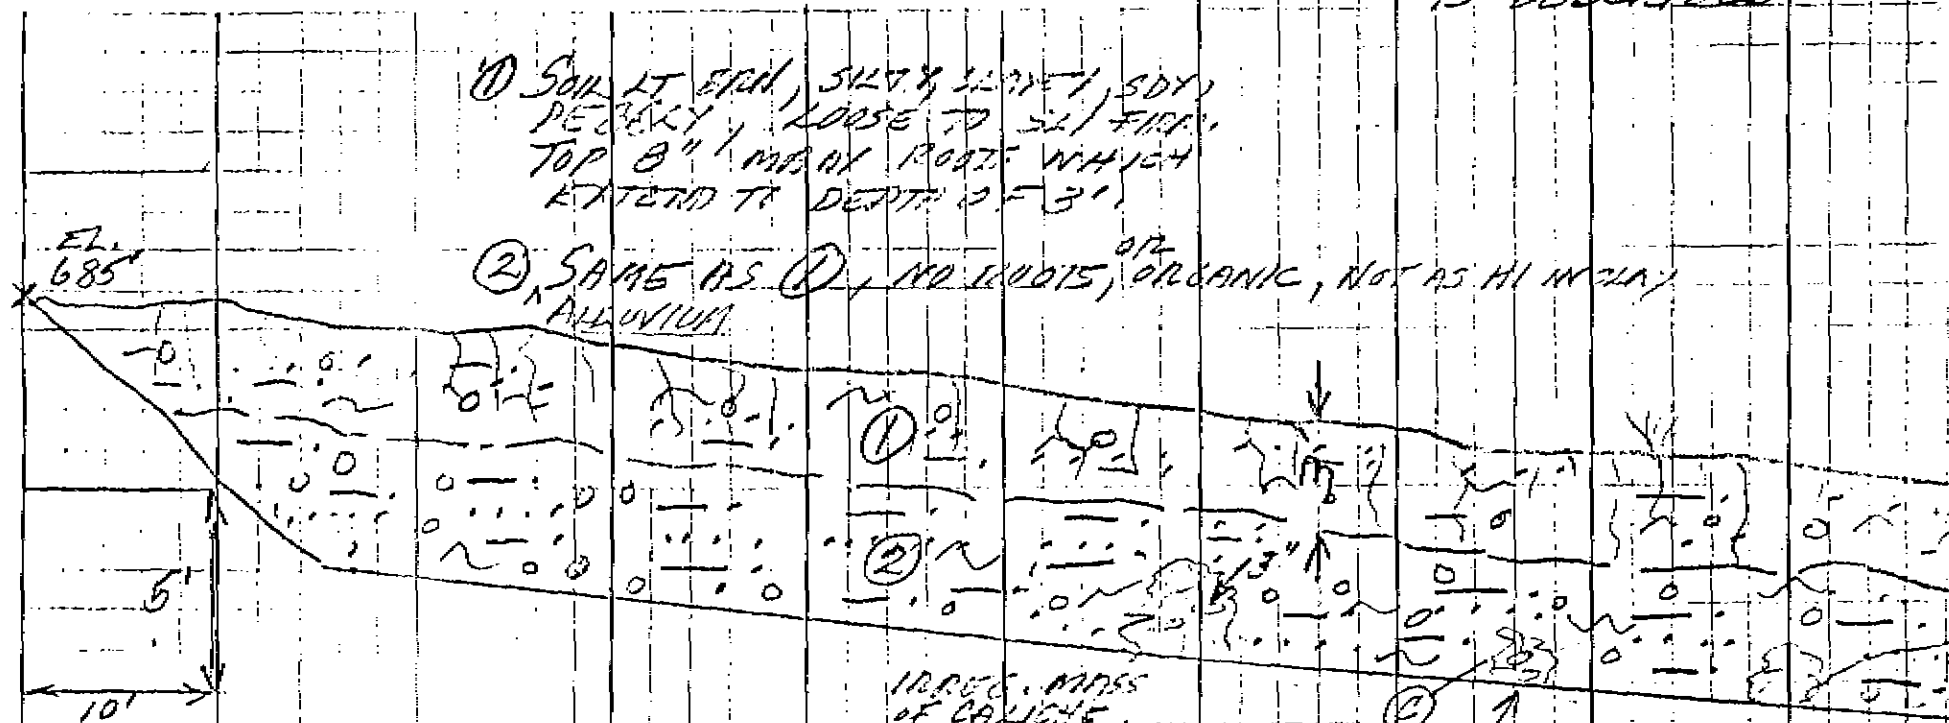 ① SOIL LT BRN, SILTY, CLAYEY, SDY,
PEBBLY, LOOSE TO SL/ FIRM.
TOP 8" MANY ROOTS WHICH
EXTEND TO DEPTH OF 3'.
EL.
685'
② SAME AS ①, NO ROOTS, OR ORGANIC, NOT AS HI IN CLAY
ALLUVIUM
①
②
3"
5'
10'
IRREG. MASS
OF CALICHE